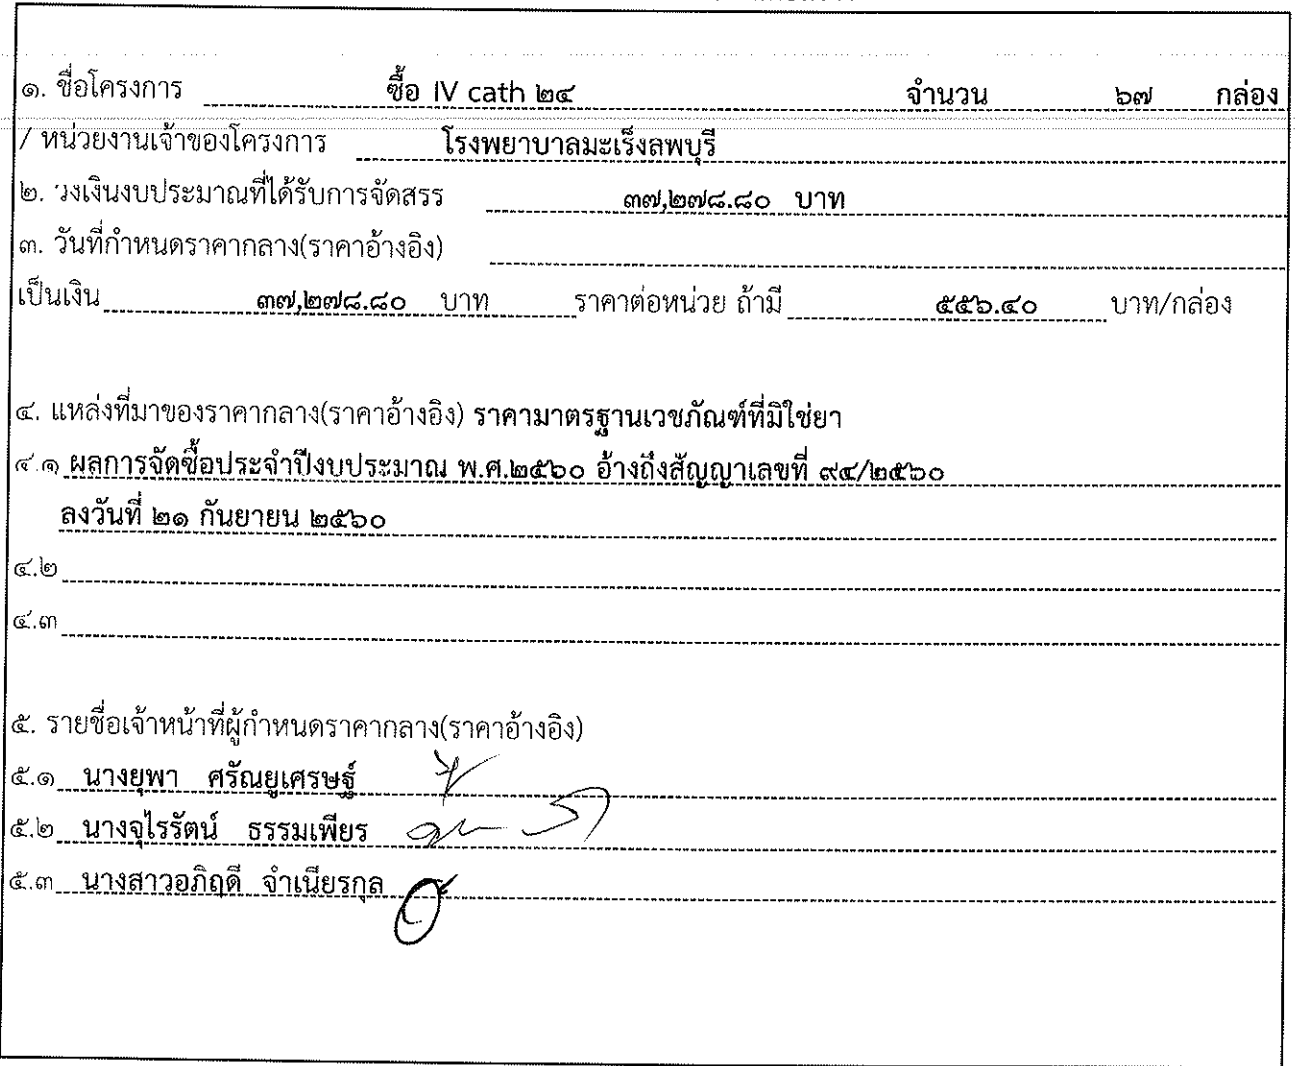 ๑. ชื่อโครงการ ซื้อ IV cath ๒๔ จำนวน ๖๗ กล่อง
/ หน่วยงานเจ้าของโครงการ โรงพยาบาลมะเร็งลพบุรี
๒. วงเงินงบประมาณที่ได้รับการจัดสรร ๓๗,๒๗๘.๘๐ บาท
๓. วันที่กำหนดราคากลาง(ราคาอ้างอิง)
เป็นเงิน ๓๗,๒๗๘.๘๐ บาท ราคาต่อหน่วย ถ้ามี ๕๕๖.๔๐ บาท/กล่อง
๔. แหล่งที่มาของราคากลาง(ราคาอ้างอิง) ราคามาตรฐานเวชภัณฑ์ที่มิใช่ยา
๔.๑ ผลการจัดซื้อประจำปีงบประมาณ พ.ศ.๒๕๖๐ อ้างถึงสัญญาเลขที่ ๙๔/๒๕๖๐
ลงวันที่ ๒๑ กันยายน ๒๕๖๐
๔.๒
๔.๓
๕. รายชื่อเจ้าหน้าที่ผู้กำหนดราคากลาง(ราคาอ้างอิง)
๕.๑ นางยุพา ศรัณยูเศรษฐ์
๕.๒ นางจุไรรัตน์ ธรรมเพียร
๕.๓ นางสาวอภิฤดี จำเนียรกุล